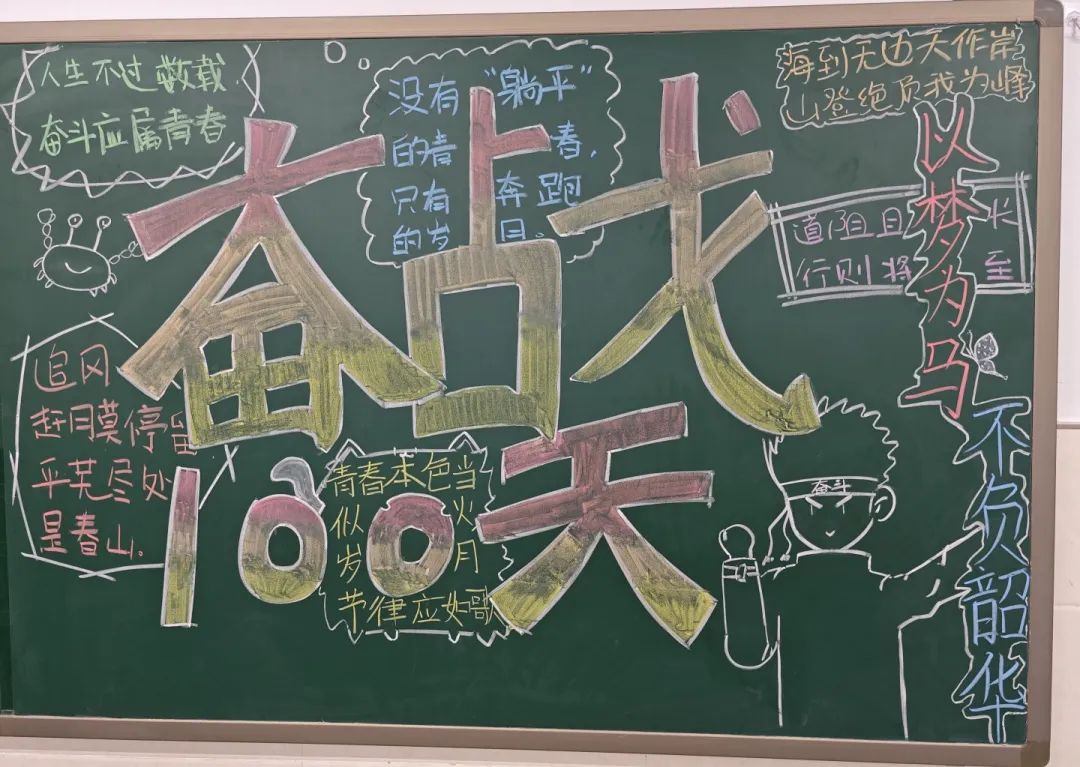 人生不过数载,
奋斗应属青春
没有“躺平”
的青春,
只有奔跑
的岁月。
海到无边天作岸
山登绝顶我为峰
奋战
道阻且长
行则将至
以梦为马
不负韶华
追风
赶月莫停留
平芜尽处
是春山。
100天
青春本色当
似火
岁月
节律应如歌
奋斗